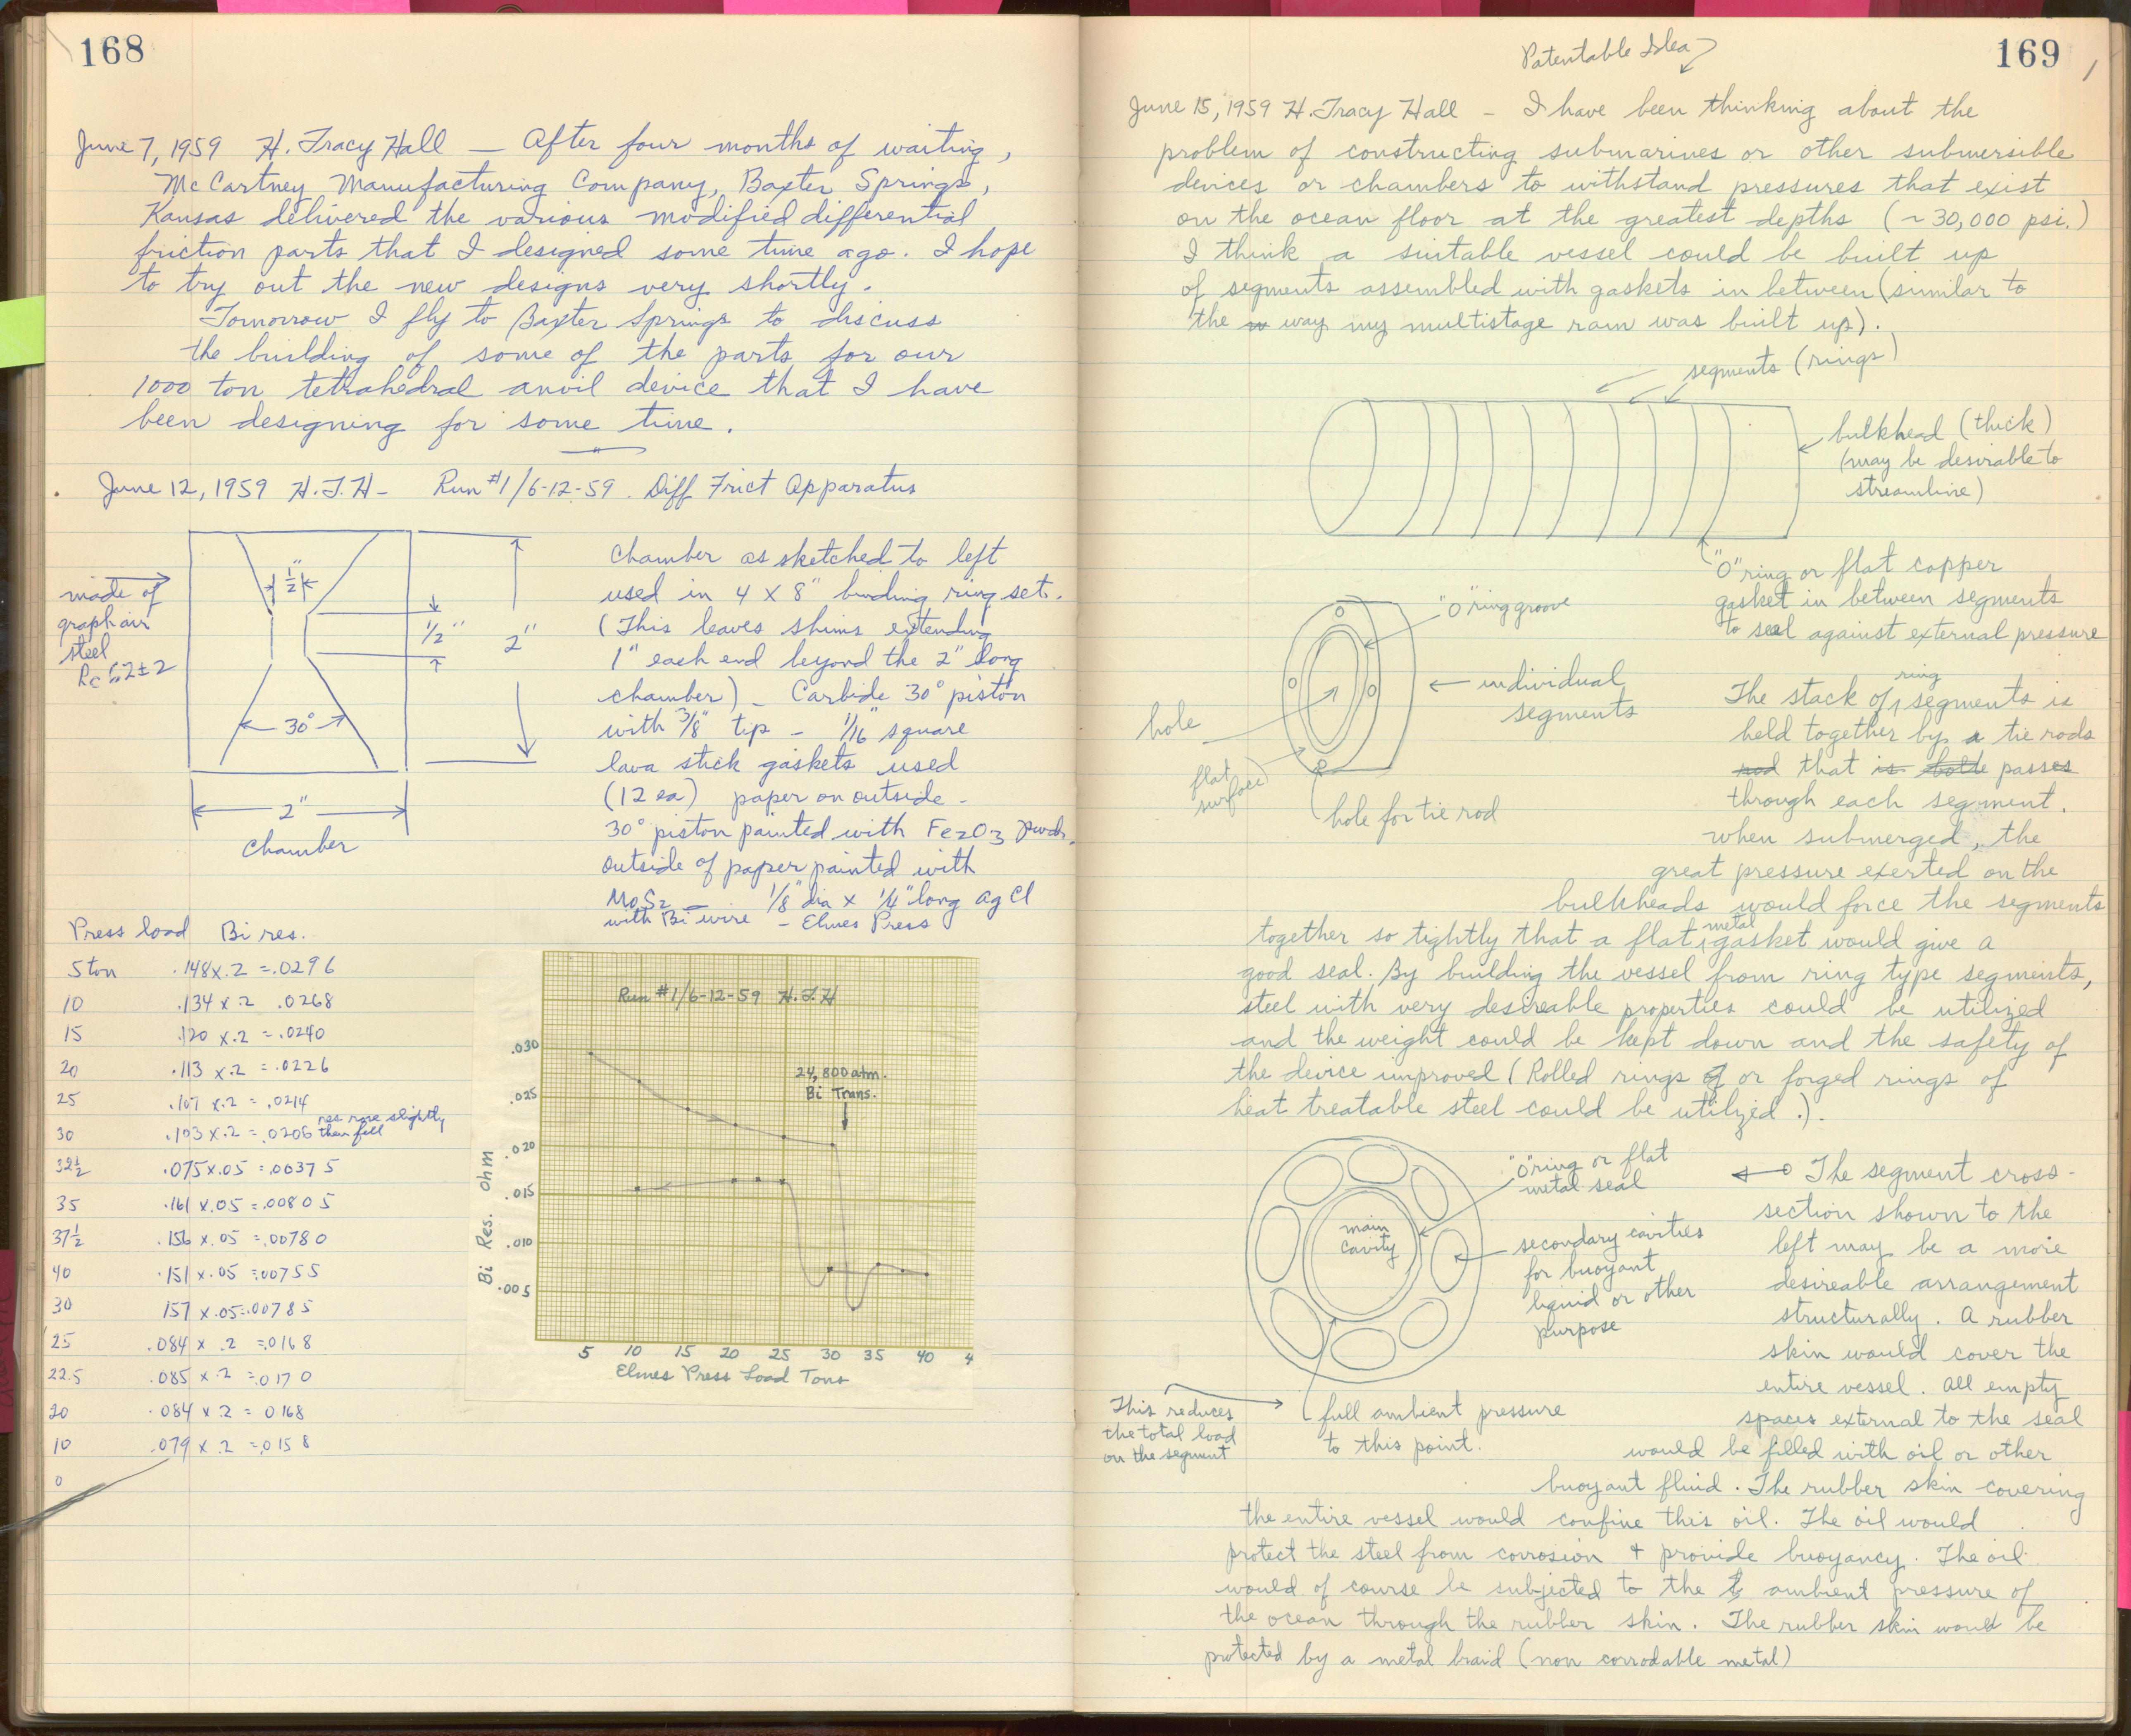 168
June 7, 1959 H. Tracy Hall — After four months of waiting,
McCartney Manufacturing Company, Baxter Springs,
Kansas delivered the various modified differential
friction parts that I designed some time ago. I hope
to try out the new designs very shortly.
Tomorrow I fly to Baxter Springs to discuss
the building of some of the parts for our
1000 ton tetrahedral anvil device that I have
been designing for some time.
June 12, 1959 H.T.H- Run #1/6-12-59. Diff Frict Apparatus
made of
graph air
steel
Rc 62±2
1/2"
1/2"
2"
30°
2"
Chamber
Chamber as sketched to left
used in 4 X 8" binding ring set.
(This leaves shims extending
1" each end beyond the 2" long
chamber) - Carbide 30° piston
with 3/8" tip - 1/16" square
lava stick gaskets used
(12 ea) paper on outside -
30° piston painted with Fe2O3 pwdr.
outside of paper painted with
MoS2 — 1/8" dia x 1/4" long AgCl
with Bi wire - Elmes Press
Press load Bi res.
5 ton .148 x .2 = .0296
10 .134 x .2 .0268
15 .120 x .2 = .0240
20 .113 x .2 = .0226
25 .107 x .2 = .0214
30 .103 x .2 = .0206 res rose slightly
then fell
32½ .075 x .05 = .00375
35 .161 x .05 = .00805
37½ .156 x .05 = .00780
40 .151 x .05 = .00755
30 157 x .05 = .00785
25 .084 x .2 = .0168
22.5 .085 x .2 = .0170
20 .084 x .2 = 0168
10 .079 x .2 = .0158
0
Run #1/6-12-59 H.T.H
24,800 atm.
Bi Trans.
.030
.025
.020
.015
.010
.005
Bi Res. Ohm
5 10 15 20 25 30 35 40 4
Elmes Press Load Tons
Patentable Idea
169
June 15, 1959 H. Tracy Hall - I have been thinking about the
problem of constructing submarines or other submersible
devices or chambers to withstand pressures that exist
on the ocean floor at the greatest depths (~30,000 psi.)
I think a suitable vessel could be built up
of segments assembled with gaskets in between (similar to
the way my multistage ram was built up).
segments (rings)
bulkhead (thick)
(may be desirable to
streamline)
"O" ring or flat copper
gasket in between segments
to seal against external pressure
"O" ring groove
individual
segments
hole
flat
surface
hole for tie rod
The stack of ring segments is
held together by a tie rods
rod that is bolte passes
through each segment.
when submerged, the
great pressure exerted on the
bulkheads would force the segments
together so tightly that a flat metal gasket would give a
good seal. By building the vessel from ring type segments,
steel with very desireable properties could be utilized
and the weight could be kept down and the safety of
the device improved (Rolled rings of or forged rings of
heat treatable steel could be utilized.).
"O" ring or flat
metal seal
main
cavity
secondary cavities
for buoyant
liquid or other
purpose
This reduces
the total load
on the segment
full ambient pressure
to this point.
The segment cross-
section shown to the
left may be a more
desireable arrangement
structurally. A rubber
skin would cover the
entire vessel. All empty
spaces external to the seal
would be filled with oil or other
buoyant fluid. The rubber skin covering
the entire vessel would confine this oil. The oil would
protect the steel from corrosion + provide buoyancy. The oil
would of course be subjected to the ambient pressure of
the ocean through the rubber skin. The rubber skin would be
protected by a metal braid (non corrodable metal)